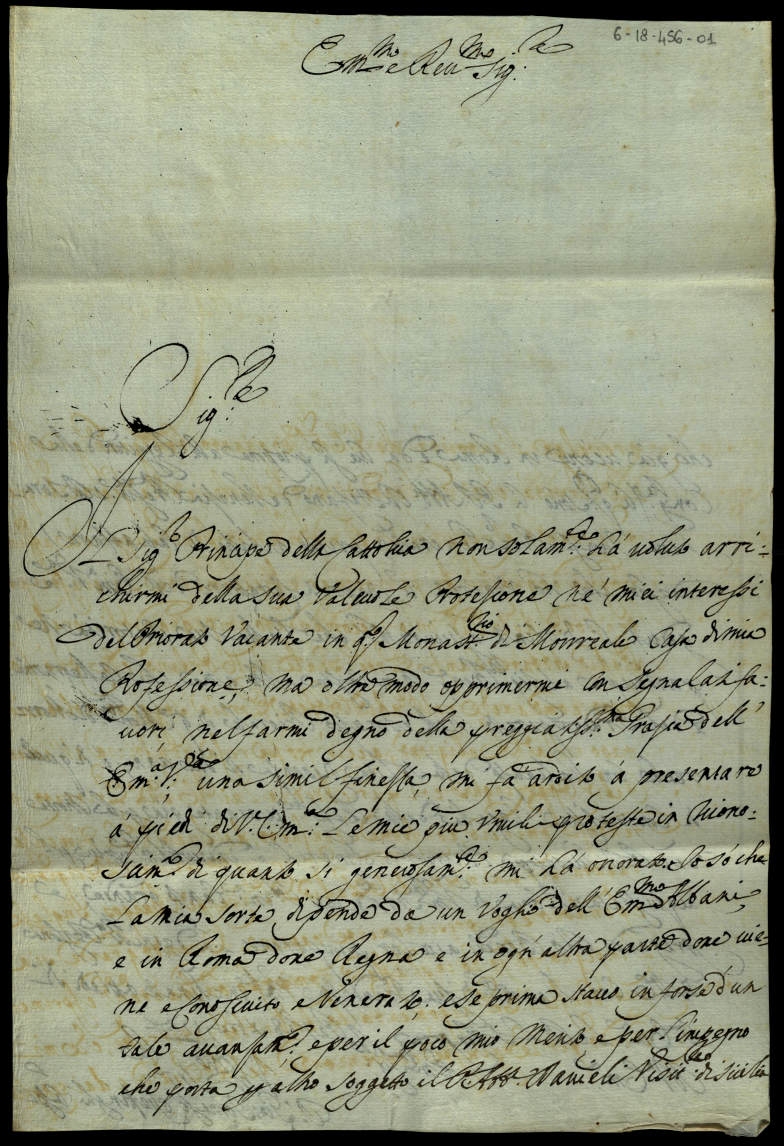 6-18-456-01
Em.mo e Reu.mo Sig.re
Sig.re
Il Sig.r Principe della Cattolica non solam.te há uoluto arri-
chirmi della sua Valeuole Protesione ne' miei interessi
del Priorato Vacante in q.o Monast.rio di Monreale Casa di mia
Professione, ma oltre modo opprimermi con segnalati fa-
uori nel farmi degno della preggiatiss.ma Grazia dell'
Em.a V.ra una simil finezza, mi fá ardito á presentare
á piedi di V. Em.a le mie piú Vmili proteste in ricono-
scim.to di quanto si generosam.te mi há onorato. Io só che
la mia sorte dipende da un Voglio dell' Em.mo Albani
e in Roma doue Regna e in ogn' altra parte doue uie-
ne e Conosciuto e Venerato. e se prima stauo in forse d'un
tale auanzam.to e per il poco mio Merito e per l'impegno
che porta p altro soggetto il P. Abb.e Danieli Visit.re di Sicilia